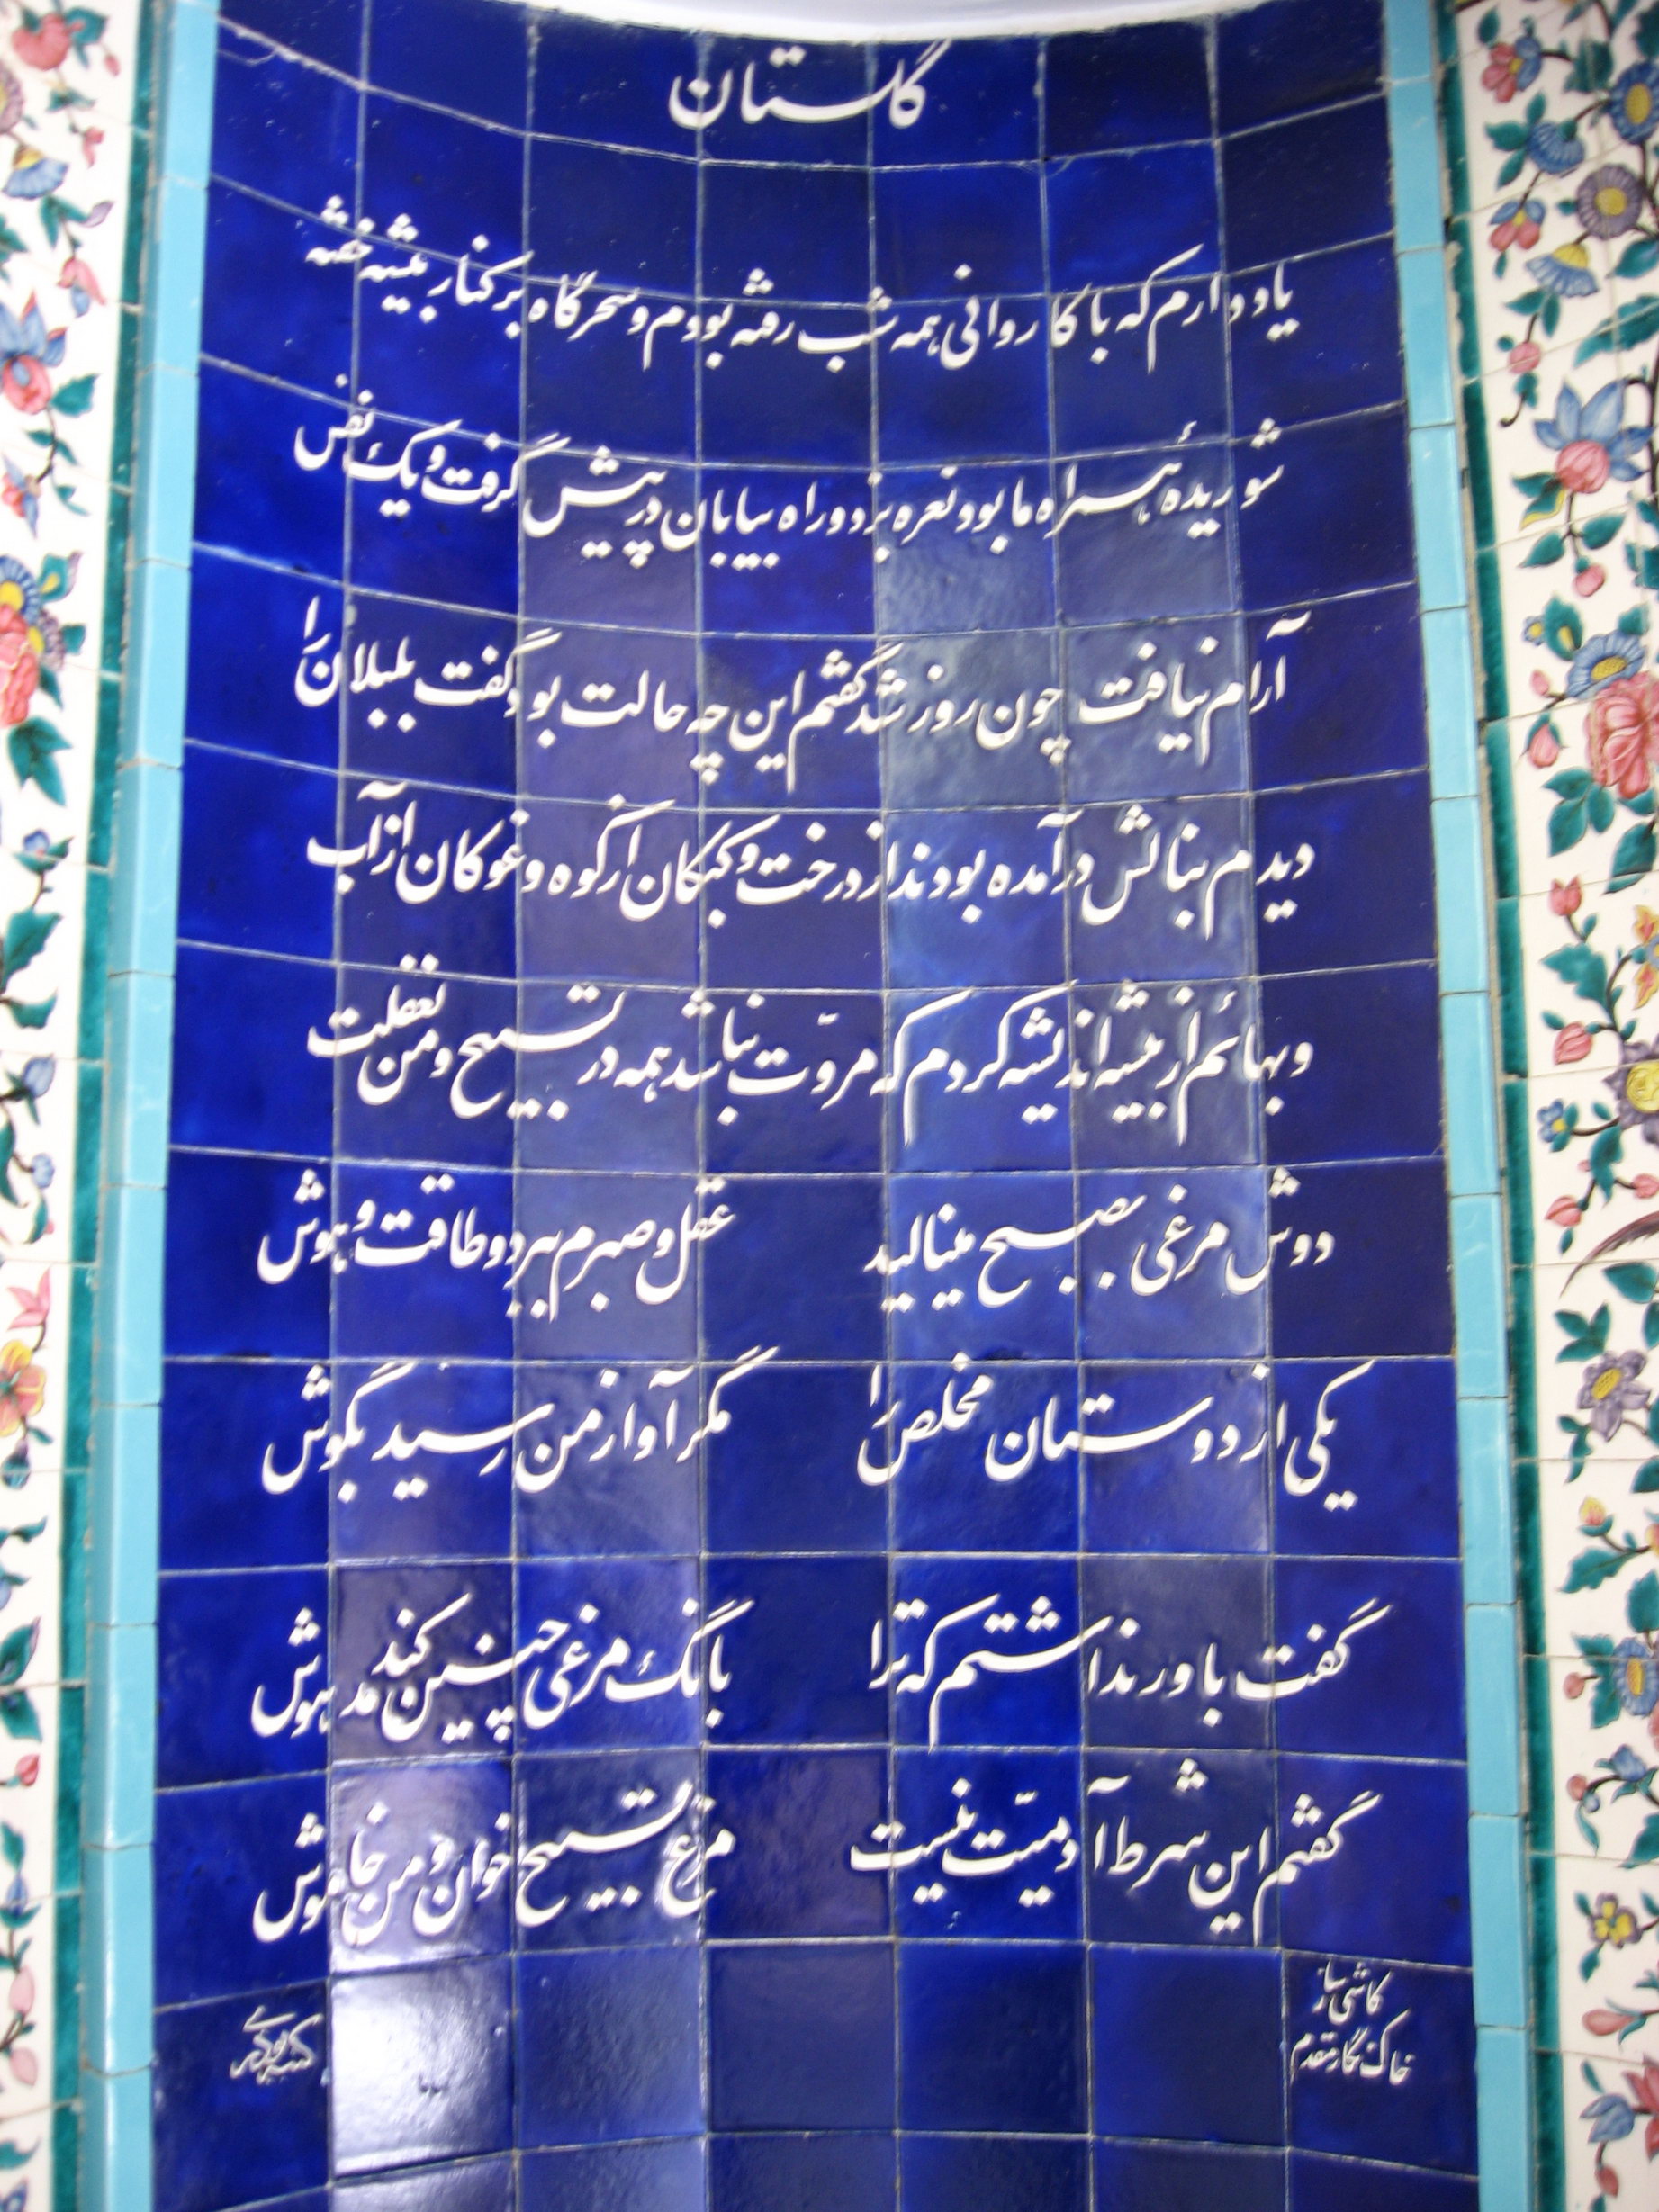 گلستان
یاد دارم که با کاروانی همه شب رفته بودم و سحرگاه بر کنار بیشه خفته
شوریدهٔ همراه ما بود و نعره بزد و راه بیابان در پیش گرفت و یک نفس
آرام نیافت چون روز شد گفتم این چه حالت بود گفت بلبلان را
دیدم بنالش درآمده بودند از درخت و کبکان از کوه و غوکان از آب
و بهائم از بیشه اندیشه کردم که مروّت نباشد همه در تسبیح و من بغفلت
دوش مرغی بصبح مینالید عقل و صبرم ببرد و طاقت و هوش
یکی از دوستان مخلص را مگر آواز من رسید بگوش
گفت باور نداشتم که ترا بانگ مرغی چنین کند مدهوش
گفتم این شرط آدمیّت نیست مرغ تسبیح خوان و من خاموش
کاشی ساز
خاک نگار مقدم